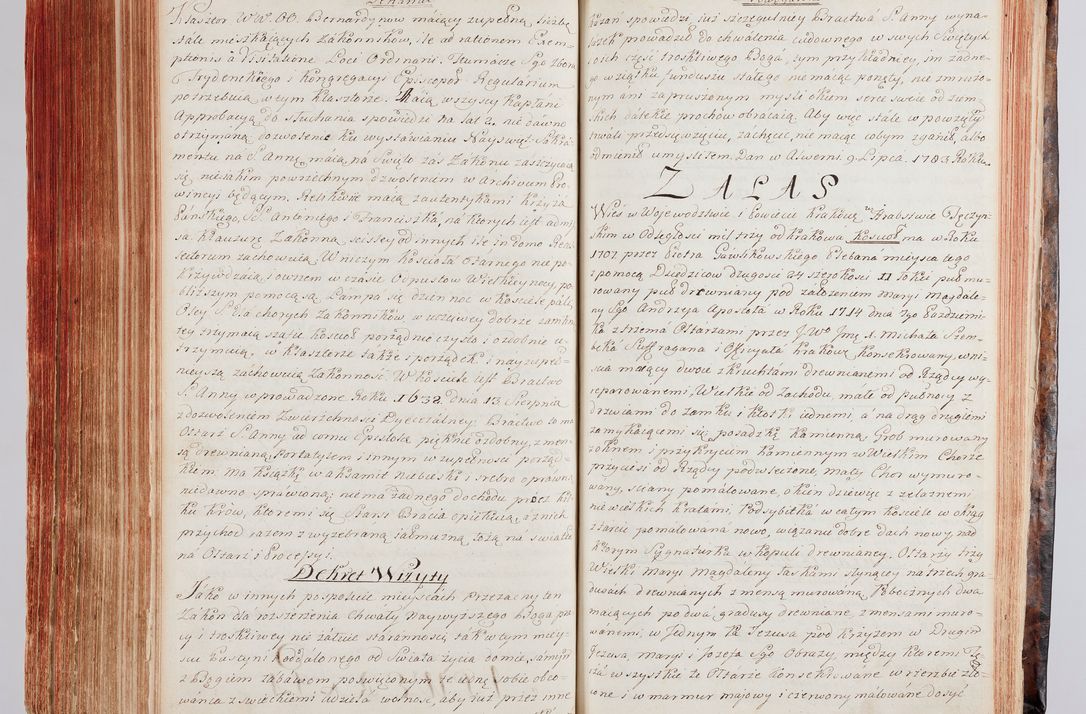 Klasztor WW. OO. Bernardynow maiący zupełną liczbę
stale mieszkaiących Zakonnikow, ile ad rationem Exem-
ptionis a Visitatione Loci Ordinarii. Tłumacze Sgo Zboru
Trydenckiego i Kongregacyi Episcopor. Regularium
potrzebuią w tym Klasztorze. Maią wszyscy Kapłani
Approbacyą do słuchania spowiedzi na lat 3. nie dawno
otrzymaną dozwolenie ku wystawianiu Nayświęt. Sakra-
mentu na S. Annę, maią, na Swięto zas Zakonu zaszczyca
się nieiakim powszechnym dozwoleniem w Archivum Pro-
wincyi będącym. Relikwie maią z autentykami Krzyża
Pańskiego, SS. Antoniego i Franciszka, na ktorych iest admis-
sa. Klauzurę Zakonną scisley od innych ile in domo Reco-
llectorum zachowuią. W niczym Koscioła Otarnego nie po-
krzywdzaią i owszem w czasie Odpustow Wielkieynocy po-
bliższym pomocą są. Lampa się dzień noc w kościele pali
Oley S. dla chorych Zakonnikow w uczciwey dobrze zamknię-
tey trzymaią szafie kościoł porządnie czysto i ozdobnie u-
trzymuią, w klasztorze także porządek i nayzupeł-
nieyszą zachowuią Zakonnosć. W kościele iest Bractwo
S. Anny wprowadzone Roku 1638. dnia 13 Sierpnia
z dozwoleniem Zwierzchnosci Dyecezalney: Bractwo to ma
Ołtarz S. Anny ad cornu Epistolæ pięknie ozdobny, z men-
są drewnianą, Portatylem i innym w zupełności porząd-
kiem: ma książkę w aksamit niebieski i srebro oprawną
niedawno sprawioną; niema żadnego dochodu procz kil-
ku krow, ktoremi się Starsi Bracia opiekuią, a z nich
przychod razem z wyzebraną iałmużną, łożą na światło
na Ołtarz i Processyi.
Dekret Wizyty
Jako w innych pospolicie mieyscach Przezacny ten
Zakon dla rozszerzenia Chwały naywyższego Boga pra-
cy i troskliwey nie żałuie staranności, tak w tym miey-
scu Pustyni oddalonego od Swiata życia domie, samym
z Bogiem zabawom poswięconym te iedną sobie obco-
wania z swieckiemi udziela wolność, aby iuż przez inne
iuż spowiedzi, iuż szczegulniey Bractwa S. Anny wyna-
lazek prowadził do chwalenia cudownego w swych Swiętych
i oich część troskliwego Boga, tym przykładniey, im żadne-
go w zięsku funduszu stałego nie maiąc ponęty, nie zmrużo-
nym ani zaprusżonym mysli okiem serce swoie od ziem-
skich dalekie prochow obracaią. Aby więc stale w powziętym
trwali przedsięwzięciu, zachęcić nie maiąc cobym zganił, albo
odmienił umysliłem. Dan w Alwerni 9 Lipca 1783 Roku.
ZALAS
Wies w Woiewodztwie i Powiecie Krakow: w Hrabstwie Tęczyń-
skim w Odległości mil trzy od Krakowa kościoł ma w Roku
1701 przez Piotra Gawlikowskiego Plebana mieysca tego
z pomocą Dziedzicow długości 24 szerokości 11 łokci puł mu-
rowany puł drewniany pod założeniem Maryi Magdale-
ny Sgo Andrzeja Apostoła w Roku 1714 dnia 7go Pazdzierni-
ka z trzema Ołtarzami przez J.Wo Jmę X. Michała Szem-
beka Suffragana i Officyała Krakow: konsekrowany, wni-
scia maiący dwoie z kruchtami drewnianemi od Rządcy wy-
reparowanemi; Wielkie od Zachodu, małe od Pułnocy z
drzwiami do zamku i klotki iednemi, a na drąg drugiemi
zamykaiącemi się; posadzkę kamienną; Grob murowany
z oknem i przykryciem kamiennym w Wielkim Chorze
przyciesi od Rządcy podwleczone, mały Chor wymuro-
wany, sciany pomalowane, okien dziewięć z żelaznemi
niewielkich kratami, Podsybitka w całym kościele w okrąg
z tarcic pomalowana nowo, wiązanie dobre dach nowy nad
ktorym Sygnaturka w kopuli drewnianey. Ołtarzy trzy
Wielki Maryi Magdaleny łaskami słynącey na trzech gra-
dusach drewnianych z mensą murowaną. Pobocznych dwa
maiących po dwa gradusy drewniane, z mensami muro-
wanemi, w Jednym Pa Jezusa pod krzyżem w Drugim
Jezusa Maryi i Jozefa Sgo Obrazy, między ktoremi
cia wszystkie te Ołtarze konsekrowane w rzezbie zło-
cone i w marmur maiowy i czerwony malowane dosyć